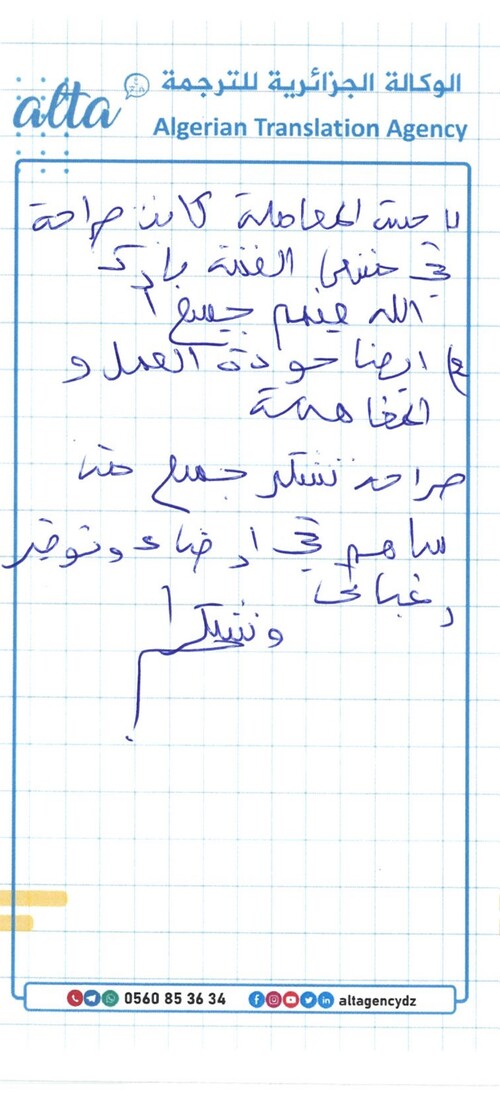 alta
الوكالة الجزائرية للترجمة
Algerian Translation Agency
حيث المعاملة كانت صراحة
في منتهى بارك
الله فيكم جميعا
ايضا جودة العمل و
صراحة نشكر جميع من
ساهم في ارضاء وتوفير
رغباتي
وشكرا
0560 85 36 34
altagencydz